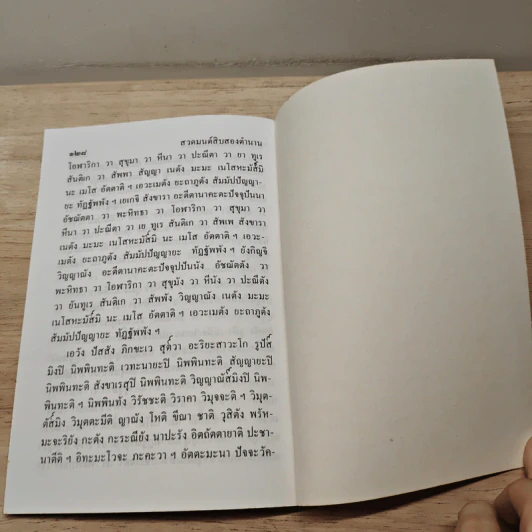 ๑๒๘ สวดมนต์สิบสองตำนาน
โอฬาริกา วา สุขุมา วา หีนา วา ปะณีตา วา ยา ทูเร
สันติเก วา สัพพา สัญญา เนตัง มะมะ เนโสหะมัส๎มิ
นะ เมโส อัตตาติ ฯ เอวะเมตัง ยะถาภูตัง สัมมัปปัญญา-
ยะ ทัฏฐัพพัง ฯ เยเกจิ สังขารา อะตีตานาคะตะปัจจุปปันนา
อัชฌัตตา วา พะหิทธา วา โอฬาริกา วา สุขุมา วา
หีนา วา ปะณีตา วา เย ทูเร สันติเก วา สัพเพ สังขารา
เนตัง มะมะ เนโสหะมัส๎มิ นะ เมโส อัตตาติ ฯ เอวะ-
เมตัง ยะถาภูตัง สัมมัปปัญญายะ ทัฏฐัพพัง ฯ ยังกิญจิ
วิญญาณัง อะตีตานาคะตะปัจจุปปันนัง อัชฌัตตัง วา
พะหิทธา วา โอฬาริกัง วา สุขุมัง วา หีนัง วา ปะณีตัง
วา ยันทูเร สันติเก วา สัพพัง วิญญาณัง เนตัง มะมะ
เนโสหะมัส๎มิ นะ เมโส อัตตาติ ฯ เอวะเมตัง ยะถาภูตัง
สัมมัปปัญญายะ ทัฏฐัพพัง ฯ
เอวัง ปัสสัง ภิกขะเว สุต๎วา อะริยะสาวะโก รูปัส๎
มิงปิ นิพพินทะติ เวทะนายะปิ นิพพินทะติ สัญญายะปิ
นิพพินทะติ สังขาเรสุปิ นิพพินทะติ วิญญาณัส๎มิงปิ นิพ-
พินทะติ ฯ นิพพินทัง วิรัชชะติ วิราคา วิมุจจะติ ฯ วิมุต-
ตัส๎มิง วิมุตตะมีติ ญาณัง โหติ ขีณา ชาติ วุสิตัง พรัห๎-
มะจะริยัง กะตัง กะระณียัง นาปะรัง อิตถัตตายาติ ปะชา-
นาตีติ ฯ อิทะมะโวจะ ภะคะวา ฯ อัตตะมะนา ปัจจะวัค-